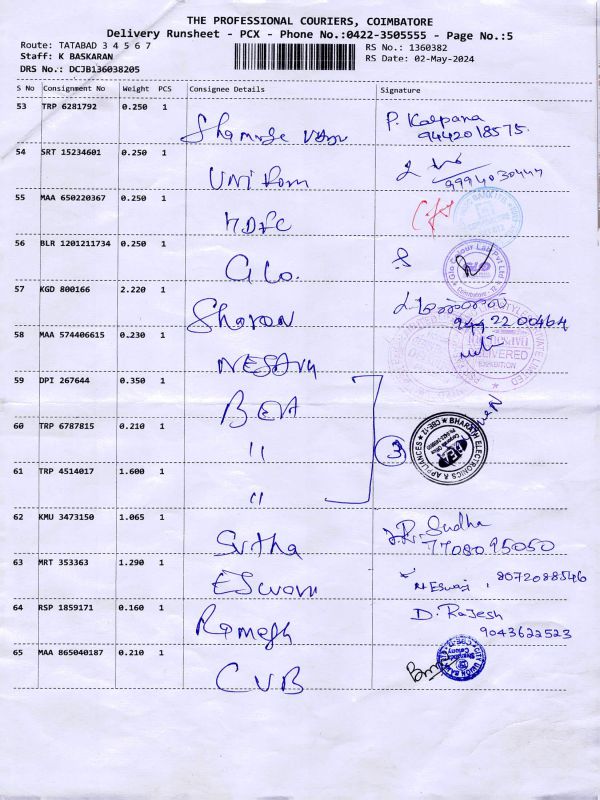 THE PROFESSIONAL COURIERS, COIMBATORE
Delivery Runsheet - PCX - Phone No.:0422-3505555 - Page No.:5
Route: TATABAD 3 4 5 6 7
RS No.: 1360382
Staff: K BASKARAN
RS Date: 02-May-2024
DRS No.: DCJB136038205
S No Consignment No Weight PCS Consignee Details Signature
53 TRP 6281792 0.250 1 P. Kalpana
9442018575
54 SRT 15234601 0.250 1 9994030444
55 MAA 650220367 0.250 1 HDFC
56 BLR 1201211734 0.250 1 Glo. Glo Colour Lab Pvt Ltd
57 KGD 800166 2.220 1 Sharan 944 22 00464
58 MAA 574406615 0.230 1 DELIVERED
59 DPI 267644 0.350 1
60 TRP 6787815 0.210 1 " 3 BHARATH ELECTRONICS & APPLIANCES CBE-12
61 TRP 4514017 1.600 1 "
62 KMU 3473150 1.065 1 Sutha J.R. Sudha
77080 95050
63 MRT 353363 1.290 1 Eswari Eswari, 8072088546
64 RSP 1859171 0.160 1 Ramesh D. Rajesh
9043622523
65 MAA 865040187 0.210 1 CUB CITY UNION BANK LTD